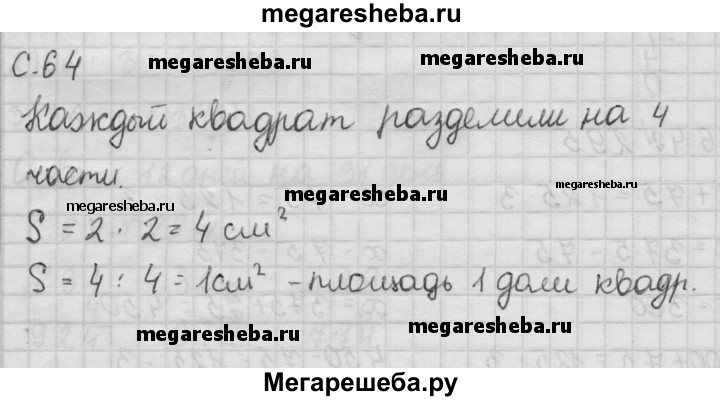 megaresheba.ru
С.64
megaresheba.ru megaresheba.ru
Каждый квадрат разделили на 4
части.
megaresheba.ru megaresheba.ru megaresheba.ru
S = 2 · 2 = 4 см²
S = 4 : 4 = 1 см² – площадь 1 доли квадр.
megaresheba.ru megaresheba.ru
Мегарешеба.ру